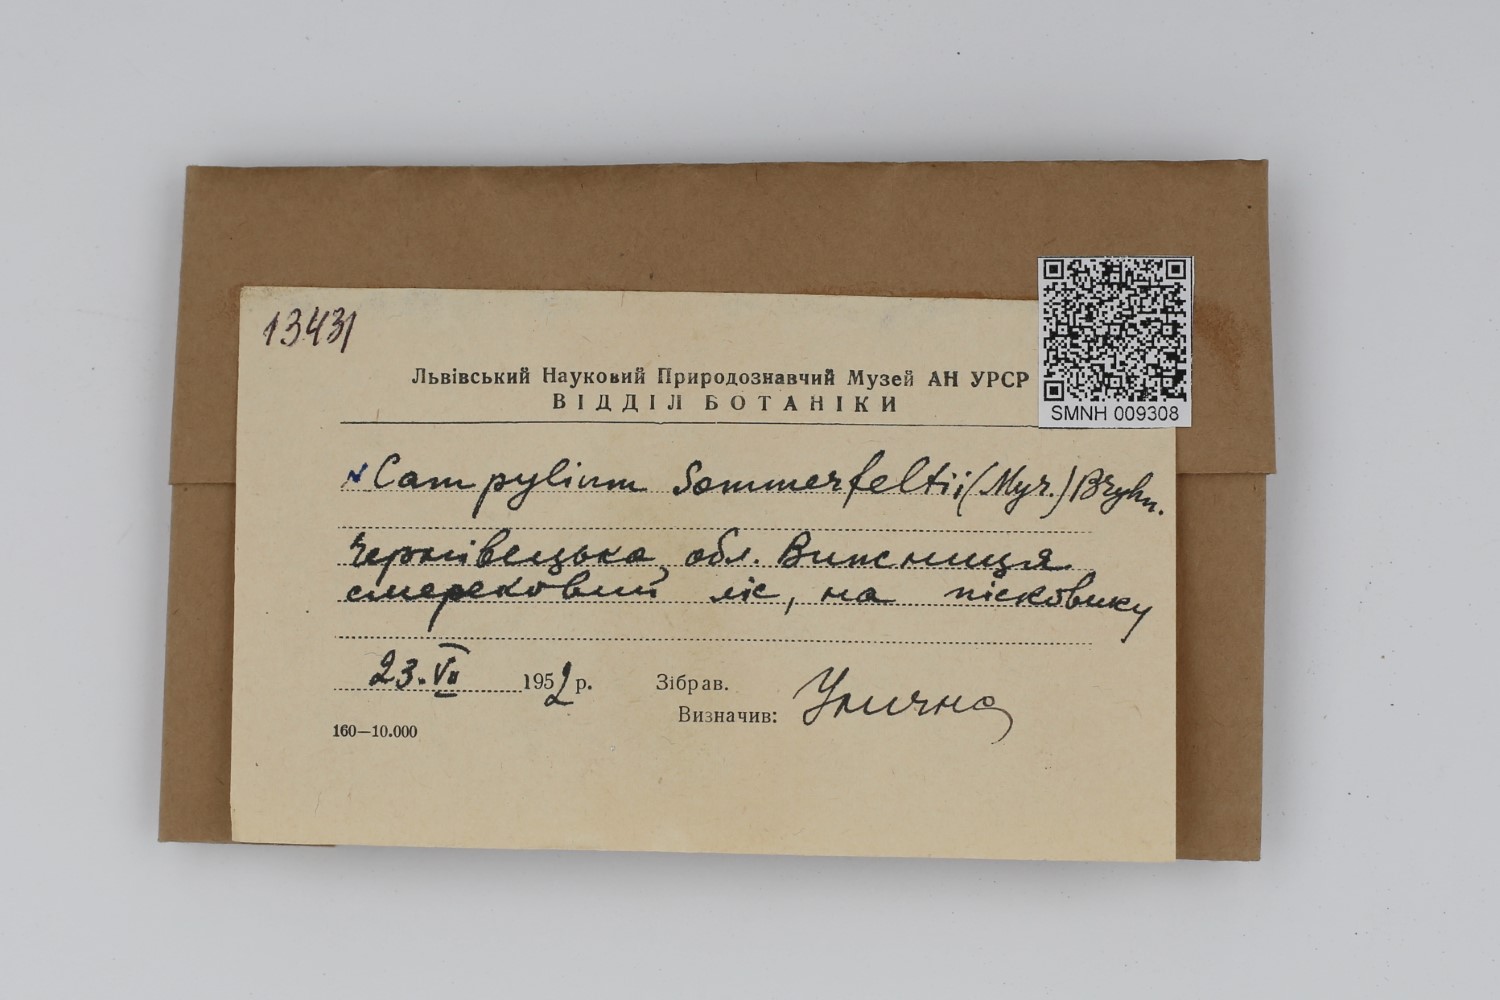 13431
Львівський Науковий Природознавчий Музей АН УРСР
ВІДДІЛ БОТАНІКИ
SMNH 009308
Campylium Sommerfeltii (Myr.) Bryhn.
Чернівецька обл. Вижниця
смерековий ліс, на пісковику
23.VII 1952 р. Зібрав.
Визначив: Улична
160—10.000